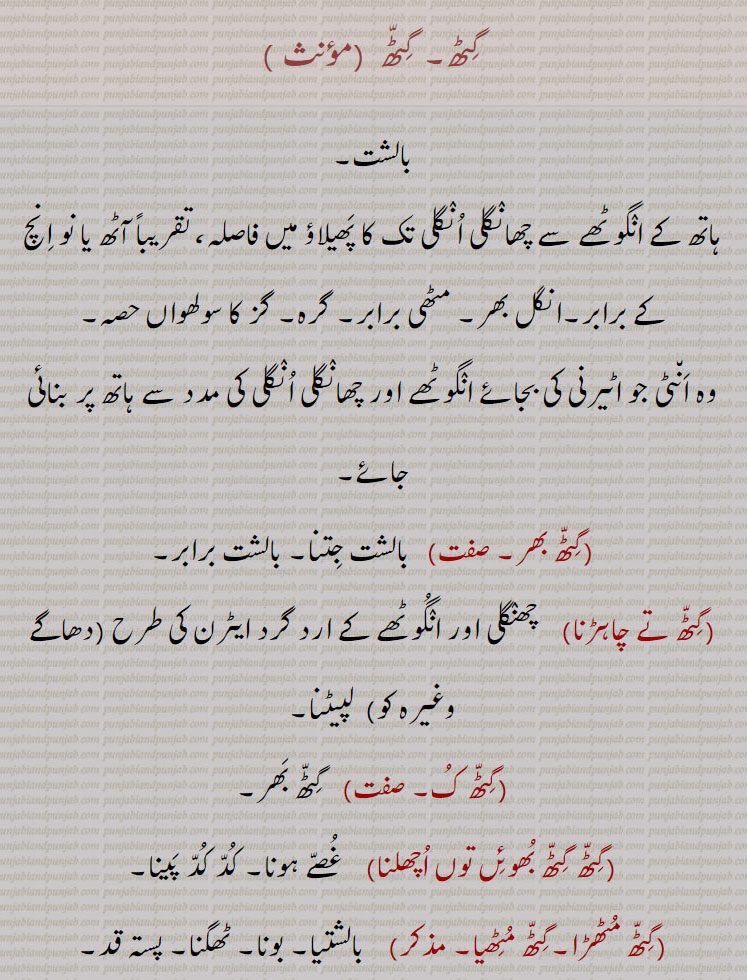 گِٹھ۔ گِٹّھ (مؤنث )
بالشت۔
ہاتھ کے انگوٹھے سے چھانگلی اُنگلی تک کا پَھیلاؤ میں فاصلہ، تقریباً آٹھ یا نو اِنچ
کے برابر۔انگل بھر ۔ مٹھی برابر۔ گرہ۔ گز کا سولھواں حصہ۔
وہ اَنّٹی جو اٹیرنی کی بجائے انگوٹھے اور چھانگلی اُنگلی کی مدد سے ہاتھ پر بنائی
جائے۔
(گِٹّھ بھر ۔ صفت) بالشت جِتنا۔ بالشت برابر۔
(گِٹّھ تے چاہڑنا) چھنگلی اور انگُوٹھے کے ارد گرد ایٹرن کی طرح (دھاگے
وغیرہ کو) لپیٹنا۔
(گِٹّھ کُ۔ صفت) گِٹّھ بَھر۔
(گِٹّھ گِٹّھ بُھوئِں توں اُچھلنا) غُصّے ہونا۔ کُدّ کُدّ پَینا۔
(گِٹّھ مُٹھڑا۔گِٹّھ مُٹِھیا۔ مذکر) بالشتیا۔ بونا۔ ٹھگنا۔ پستہ قد۔